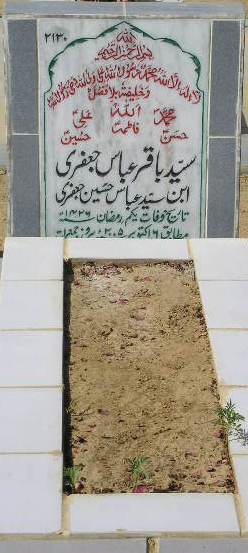 ۲۱۳۰
اللہ
بسم اللہ الرحمٰن الرحیم
لا الہ الا اللہ محمد رسول اللہ علی ولی اللہ وصی رسول اللہ
وخلیفتہ بلا فصل
محمدؐ اللہ علیؑ
حسنؑ فاطمہؑ حسینؑ
سید باقر عباس جعفری
ابن سید عباس حسین جعفری
تاریخ وفات یکم رمضان ۱۴۲۶ھ
مطابق ۶ اکتوبر ۲۰۰۵ بروز جمعرات